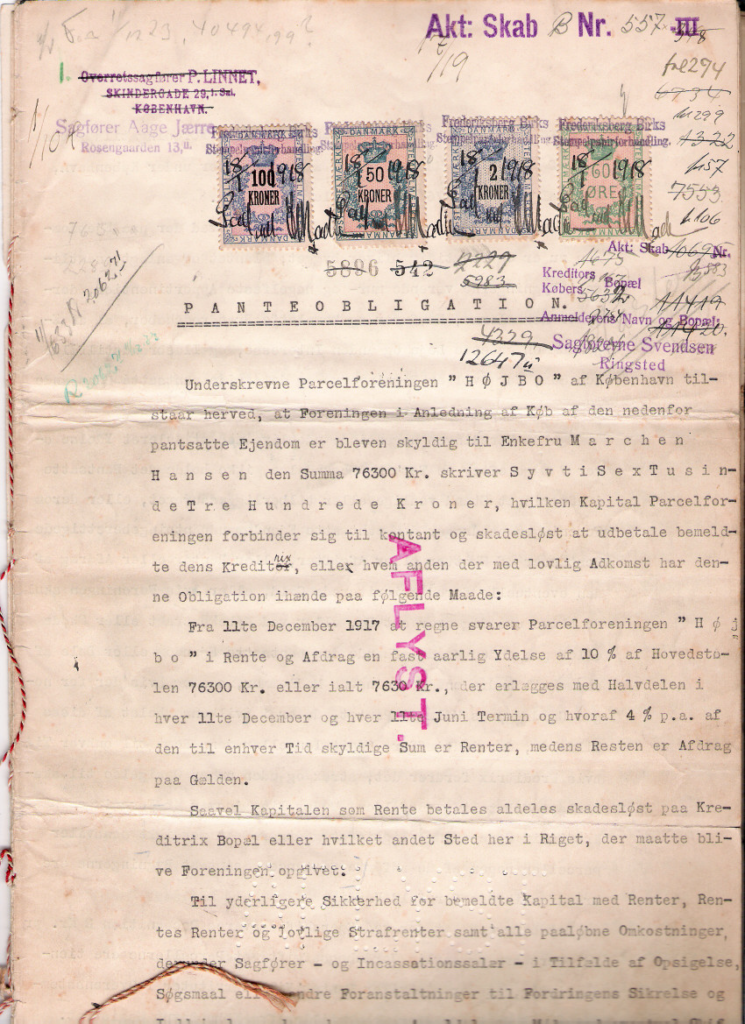 Akt: Skab B Nr. 557
1.
Overretssagfører P. LINNET,
SKINDERGADE 29, 1. Sal.
KØBENHAVN.
Sagfører Aage Jærre
Rosengaarden 13,
Frederiksberg Birks
Stempelpapirforhandling.
Frederiksberg Birks
Stempelpapirforhandling.
DANMARK
100
KRONER
DANMARK
50
KRONER
DANMARK
2
KRONER
60
ØRE
18/1 1918
18/1 1918
18/1 1918
18/1 1918
fol 294
6934
1322
7553
5896 542 2229
5983
Akt: Skab Nr.
Kreditors Bopæl
Købers
Anmelderens Navn og Bopæl:
Sagførerne Svendsen
Ringsted
PANTEOBLIGATION.
4329
12647
Underskrevne Parcelforeningen " H Ø J B O " af København til-
staar herved, at Foreningen i Anledning af Køb af den nedenfor
pantsatte Ejendom er bleven skyldig til Enkefru M a r c h e n
H a n s e n den Summa 76300 Kr. skriver S y v t i S e x T u s i n-
d e T r e H u n d r e d e K r o n e r, hvilken Kapital Parcelfor-
eningen forbinder sig til kontant og skadesløst at udbetale bemeld-
te dens Kreditrix, eller hvem anden der med lovlig Adkomst har den-
ne Obligation ihænde paa følgende Maade:
Fra 11te December 1917 at regne svarer Parcelforeningen " H ø j
b o " i Rente og Afdrag en fast aarlig Ydelse af 10 % af Hovedsto-
len 76300 Kr. eller ialt 7630 Kr., der erlægges med Halvdelen i
hver 11te December og hver 11te Juni Termin og hvoraf 4 % p.a. af
den til enhver Tid skyldige Sum er Renter, medens Resten er Afdrag
paa Gælden.
AFLYST.
Saavel Kapitalen som Rente betales aldeles skadesløst paa Kre-
ditrix Bopæl eller hvilket andet Sted her i Riget, der maatte bli-
ve Foreningen opgivet.
Til yderligere Sikkerhed for bemeldte Kapital med Renter, Ren-
tes Renter og lovlige Strafrenter samt alle paaløbne Omkostninger,
derunder Sagfører - og Incassationssalær - i Tilfælde af Opsigelse,
Søgsmaal eller andre Foranstaltninger til Fordringens Sikrelse og